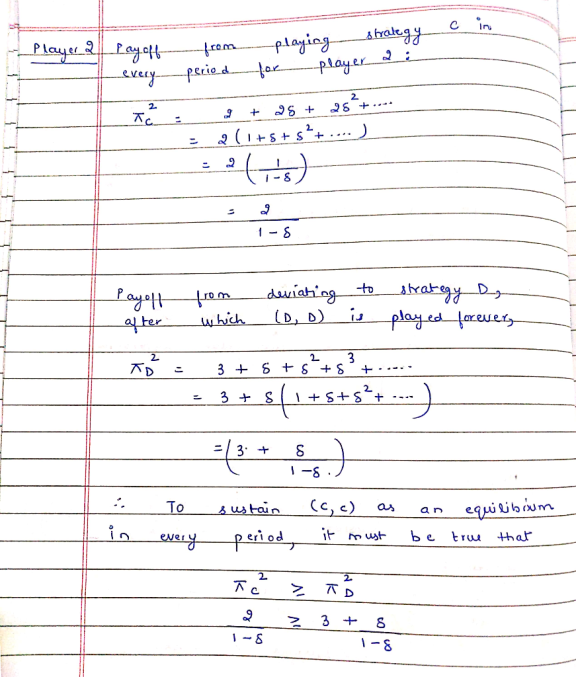 Player 2 Payoff from playing strategy C in
every period for player 2 :
π_C^2 = 2 + 2δ + 2δ^2 + ....
= 2 ( 1 + δ + δ^2 + .... )
= 2 ( 1 / (1-δ) )
= 2 / (1-δ)
Payoff from deviating to strategy D,
after which (D, D) is played forever,
π_D^2 = 3 + δ + δ^2 + δ^3 + .....
= 3 + δ ( 1 + δ + δ^2 + .... )
= ( 3 + δ / (1-δ) )
∴ To sustain (C, C) as an equilibrium
in every period, it must be true that
π_C^2 ≥ π_D^2
2 / (1-δ) ≥ 3 + δ / (1-δ)